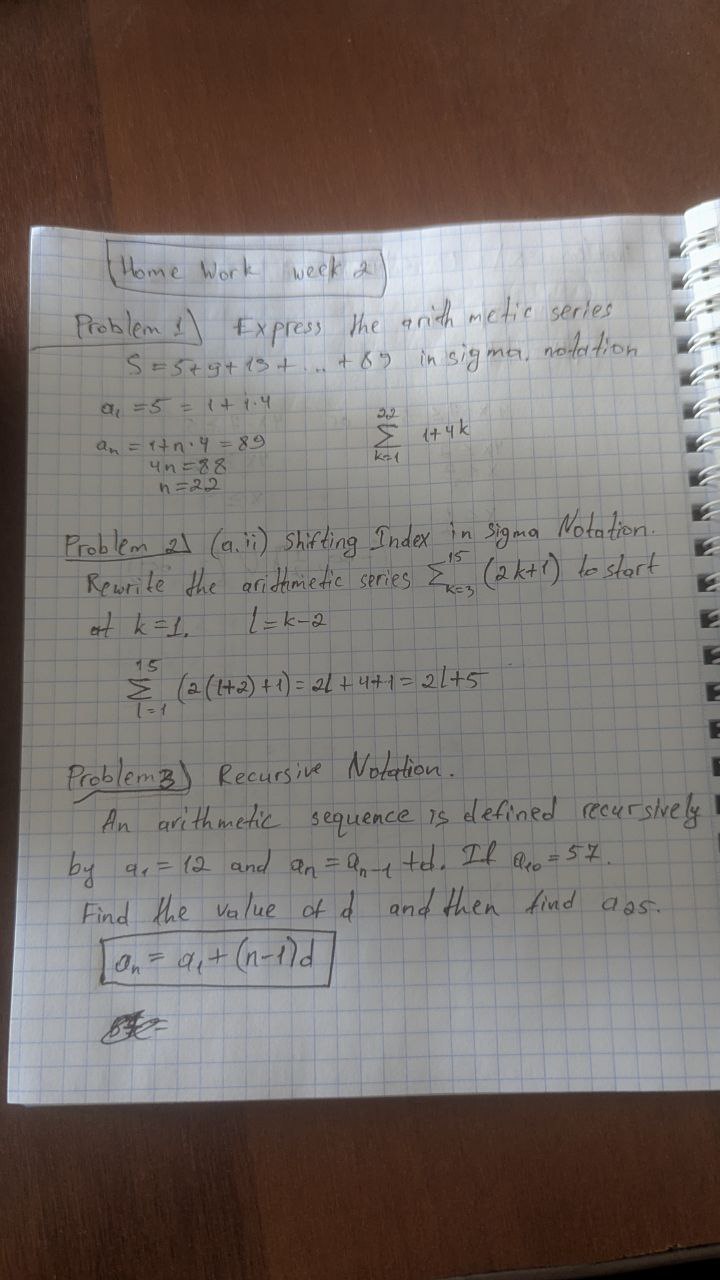 Home Work week 2
Problem 1) Express the arithmetic series
S = 5+9+13+...+89 in sigma notation
a₁ = 5 = 1+1·4
aₙ = 1+n·4 = 89
4n = 88
n = 22
∑_{k=1}^{22} 1+4k
Problem 2) (a.ii) Shifting Index in Sigma Notation.
Rewrite the arithmetic series ∑_{k=3}^{15} (2k+1) to start
at k=1. l = k-2
∑_{l=1}^{15} (2(l+2)+1) = 2l+4+1 = 2l+5
Problem 3) Recursive Notation.
An arithmetic sequence is defined recursively
by a₁ = 12 and aₙ = aₙ₋₁ + d. If a₁₀ = 57.
Find the value of d and then find a₂₅.
aₙ = a₁ + (n-1)d